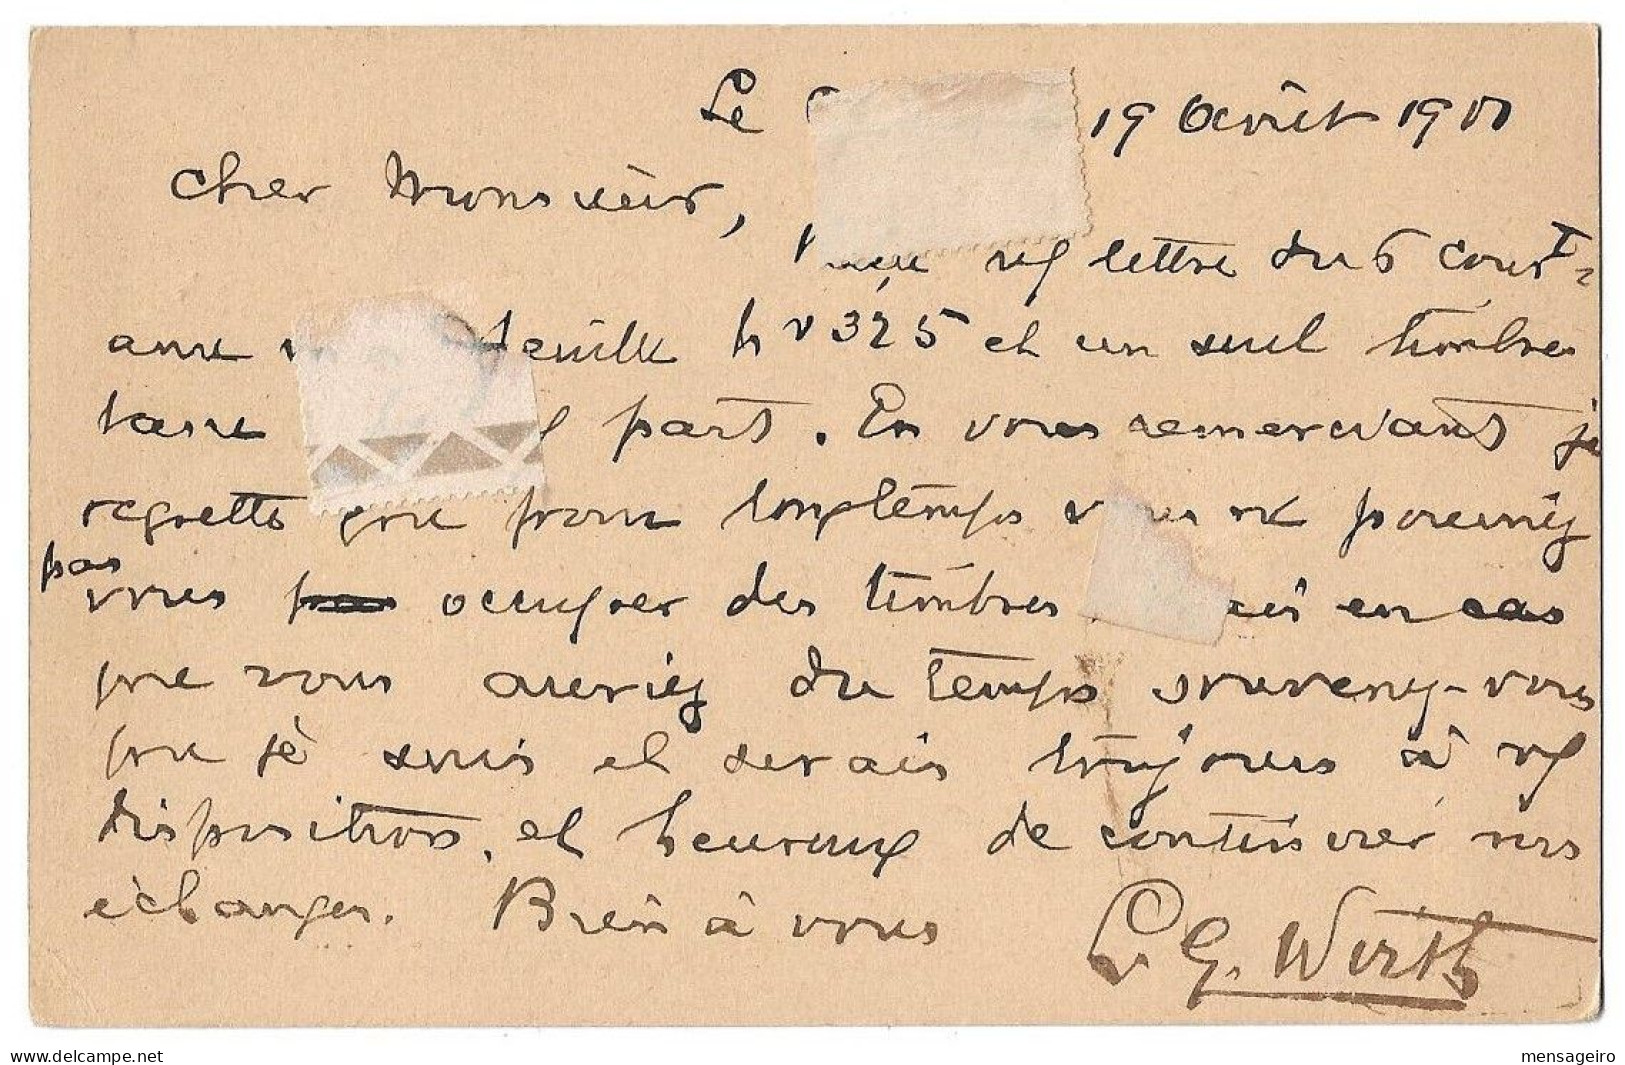 Le 19 Août 1901
Cher Monsieur,
reçu lettre du 6 court
avec feuille No 325 et un seul timbre
taxe part. En vous remerciant je
regrette que pour longtemps vous ne pouviez
pas
vous occuper des timbres mais en cas
que vous auriez du temps souvenez-vous
que je suis et serais toujours à
disposition, et heureux de continuer nos
échanges. Bien à vous G. Wirth
mensageiro